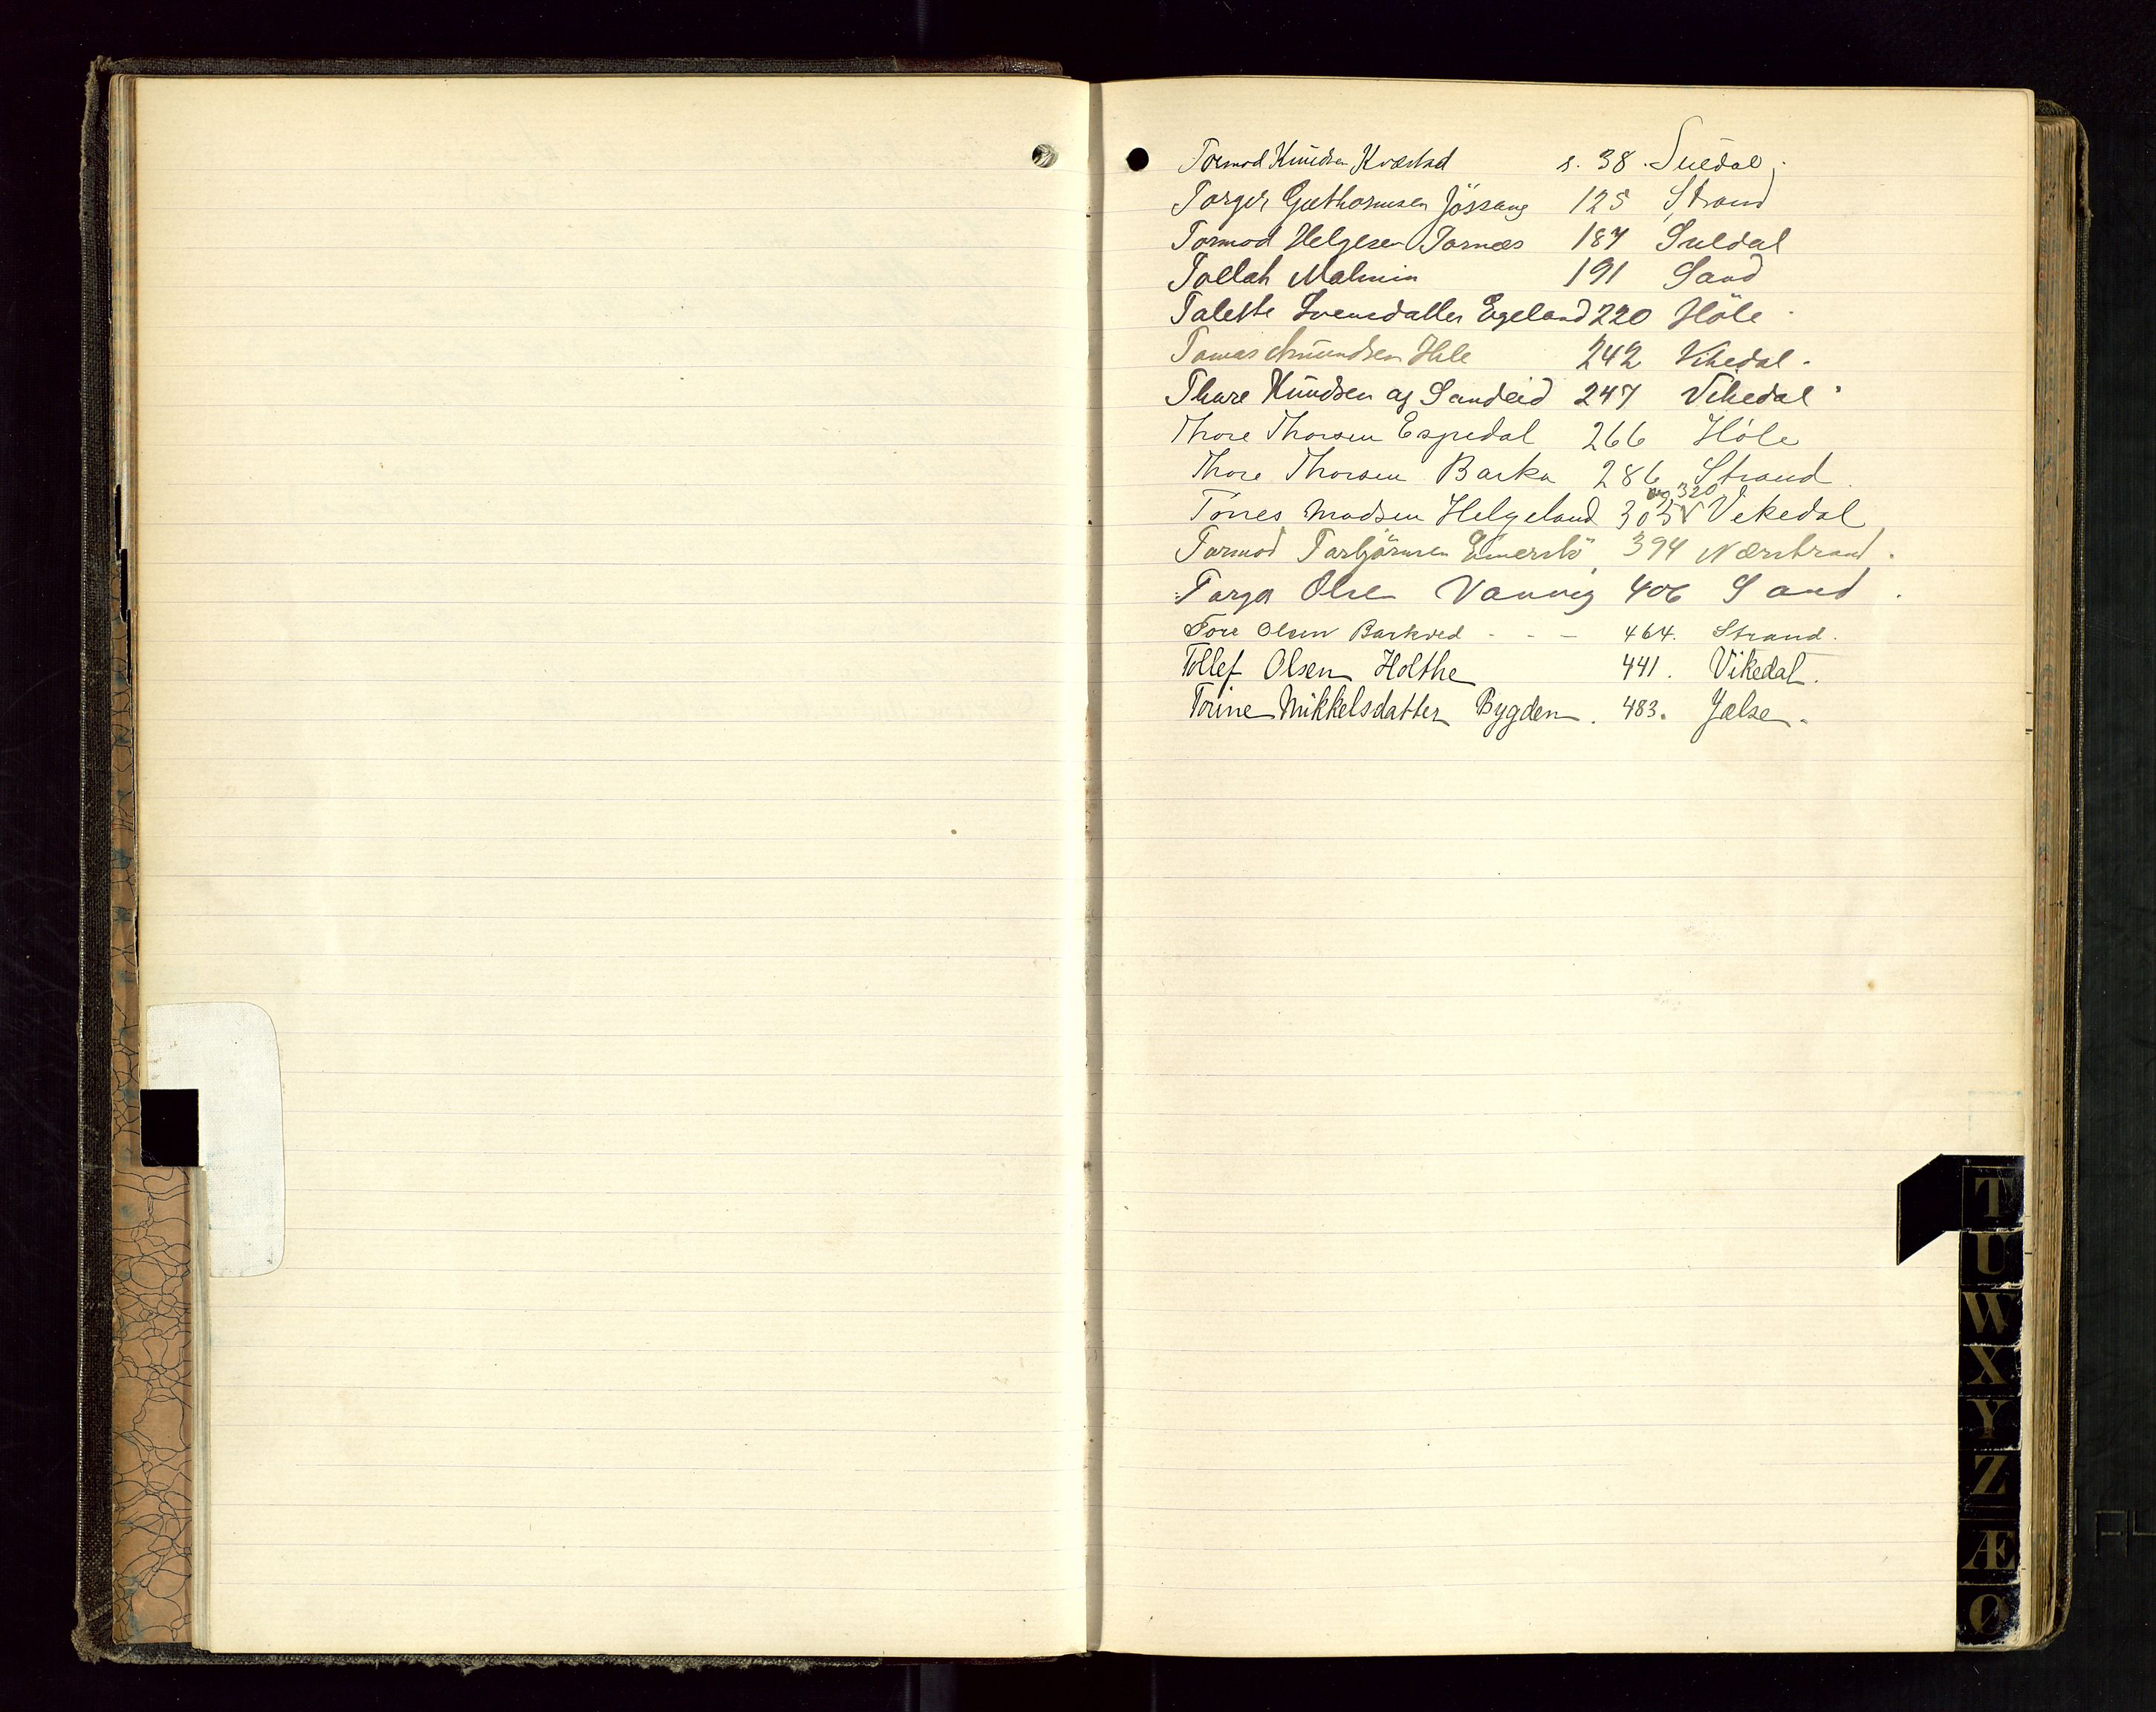 Tormod Knudsen Kvæstad s. 38. Suldal.
Torger Guthormsen Jössang 125 Strand
Tormod Helgesen Tornæs 187 Suldal
Tollak Malmin 191 Sand
Talette Svensdatter Egeland 220 Höle
Tomas Amundsen Hile 242 Vikedal.
Thore Knudsen og Sandeid 247 Vikedal
Thore Thorsen Espedal 266 Höle
Thore Thorsen Barka 286 Strand.
og 320
Tönes Madsen Helgeland 305 Vekedal
Tormod Torbjörnsen 394 Nærstrand.
Torger Olsen Vanvig 406 Sand.
Tore Olsen Barkved - - - 464. Strand.
Tollef Olsen Holthe 441. Vikedal.
Torine Mikkelsdatter Bygden. 483. Jælse.
T
U
W
X
Y
Z
Æ
Ø